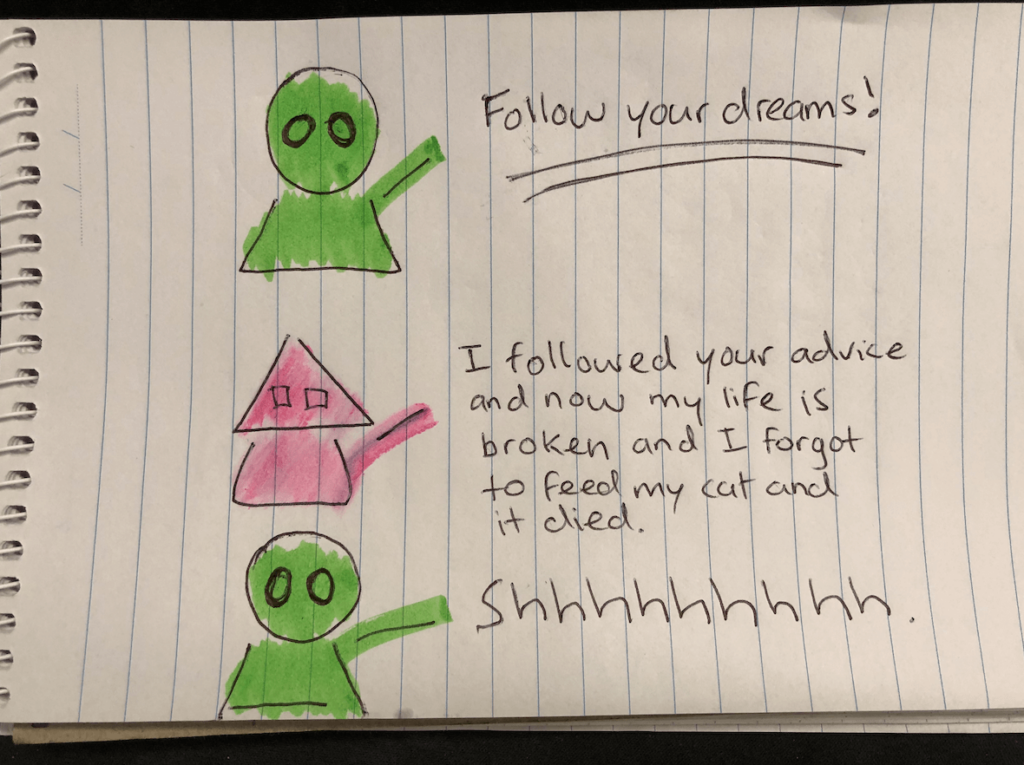 Follow your dreams!
I followed your advice
and now my life is
broken and I forgot
to feed my cat and
it died.
Shhhhhhhhhh.